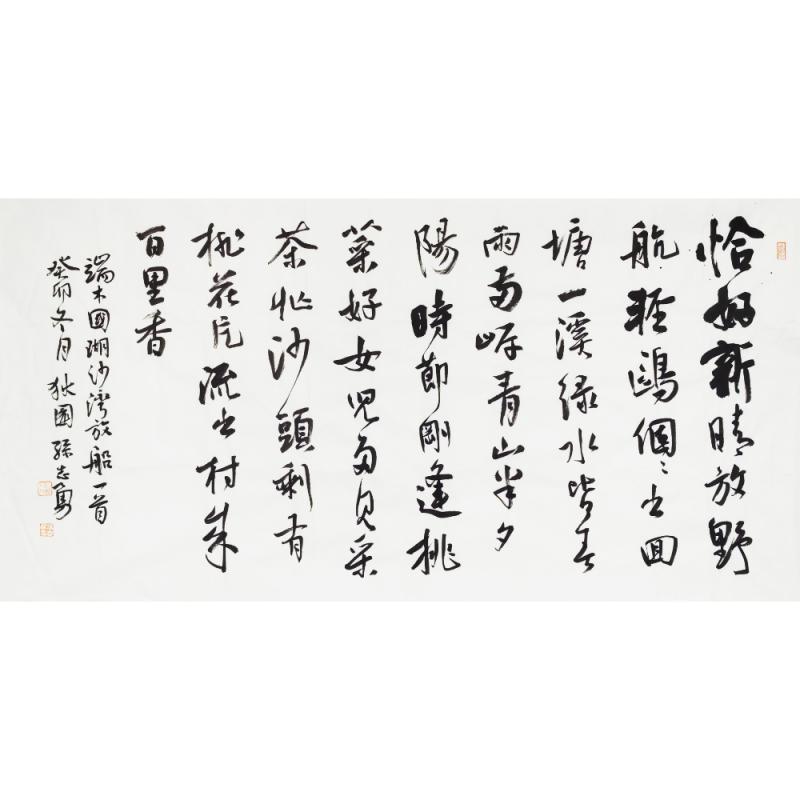 恰好新晴放野
航輕鷗個々出回
塘一溪緑水皆春
雨兩岸青山半夕
陽時節剛逢挑
菜好女兒多見采
茶忙沙頭剩有
桃花片流出村来
百里香
端木國瑚沙灣放船一首
癸卯冬月園孫志勇